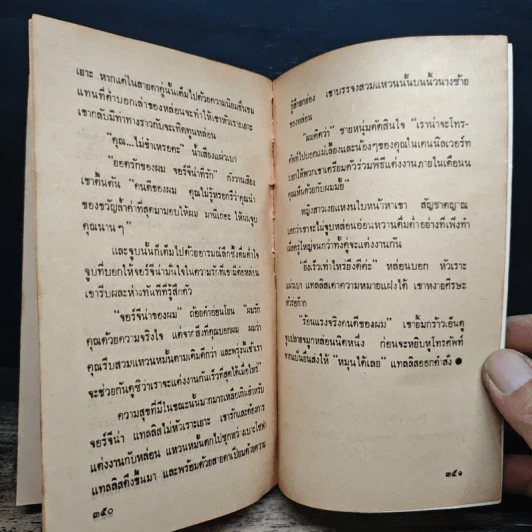 เยาะ หากแต่ในสายตาคู่นั้นเต็มไปด้วยความนิยมชื่นชม
แทนที่คำบอกเล่าของหล่อนจะทำให้เขาหัวเราะเยาะ
เขากลับมีท่าทางราวกับจะเทิดทูนหล่อน
"คุณ...ไม่ขำเหรอคะ" น้ำเสียงแผ่วเบา
"ยอดรักของผม จอร์จีน่าที่รัก" กังวานเสียง
เขาตื้นตัน "คนดีของผม คุณไม่รู้หรอกรึว่าคุณนำ
ของขวัญล้ำค่าที่สุดมามอบให้ผม มานี่เถอะ ให้ผมจูบ
คุณนาน ๆ"
และจูบนั้นก็เต็มไปด้วยอารมณ์ลึกซึ้งดื่มด่ำใจ
จูบที่บอกให้จอร์จีน่ามั่นใจในความรักที่เขามีต่อหล่อน
เขารีบผละห่างทันทีที่รู้สึกตัว
"จอร์จีน่าของผม" ถ้อยคำอ่อนโยน "ผมรัก
คุณด้วยความจริงใจ แต่จากสิ่งที่คุณบอกผม ผมว่า
คุณรีบสวมแหวนหมั้นตามเดิมดีกว่า และพรุ่งนี้เช้าเรา
จะช่วยกันดูซิว่าเราจะแต่งงานกันเร็วที่สุดได้เมื่อไหร่"
ความสุขที่มีในขณะนั้นมากมายเหลือเกินสำหรับ
จอร์จีน่า แทลลิสไม่หัวเราะเยาะ เขารักและต้องการ
แต่งงานกับหล่อน แหวนหมั้นตกไปซุกหว่างเบาะโซฟา
แทลลิสดึงขึ้นมา และพร้อมด้วยสายตาเปี่ยมด้วยความ
๓๕๐
รู้สึกยกย่อง เขาบรรจงสวมแหวนนั้นบนนิ้วนางซ้าย
ของหล่อน
"ผมคิดว่า" ชายหนุ่มตัดสินใจ "เราน่าจะโทร-
ศัพท์ไปบอกแม่เลี้ยงและน้องๆของคุณในเคนนิลเวอร์ท
บอกให้พวกเขาเตรียมตัวร่วมพิธีแต่งงานภายในเดือนนี้
คุณเห็นด้วยกับผมมั้ย"
หญิงสาวเงยแหงนใบหน้าหาเขา สัญชาตญาณ
บอกว่าเขาจะไม่จูบหล่อนอ่อนหวานดื่มด่ำอย่างที่เพิ่งทำ
เมื่อครู่ใหญ่จนกว่าทั้งคู่จะแต่งงานกัน
"ยิ่งเร็วเท่าไหร่ยิ่งดีค่ะ" หล่อนบอก หัวเราะ
แผ่วเบา แทลลิสตีความหมายแฝงได้ เขาหงายศีรษะ
หัวร่อก๊าก
"ร้อนแรงจริงคนดีของผม" เขายิ้มกร้าวเอ็นดู
จูบปลายจมูกหล่อนนิดหนึ่ง ก่อนจะหยิบหูโทรศัพท์
จากแป้นยื่นส่งให้ "หมุนได้เลย" แทลลิสออกคำสั่ง ●
๓๕๑